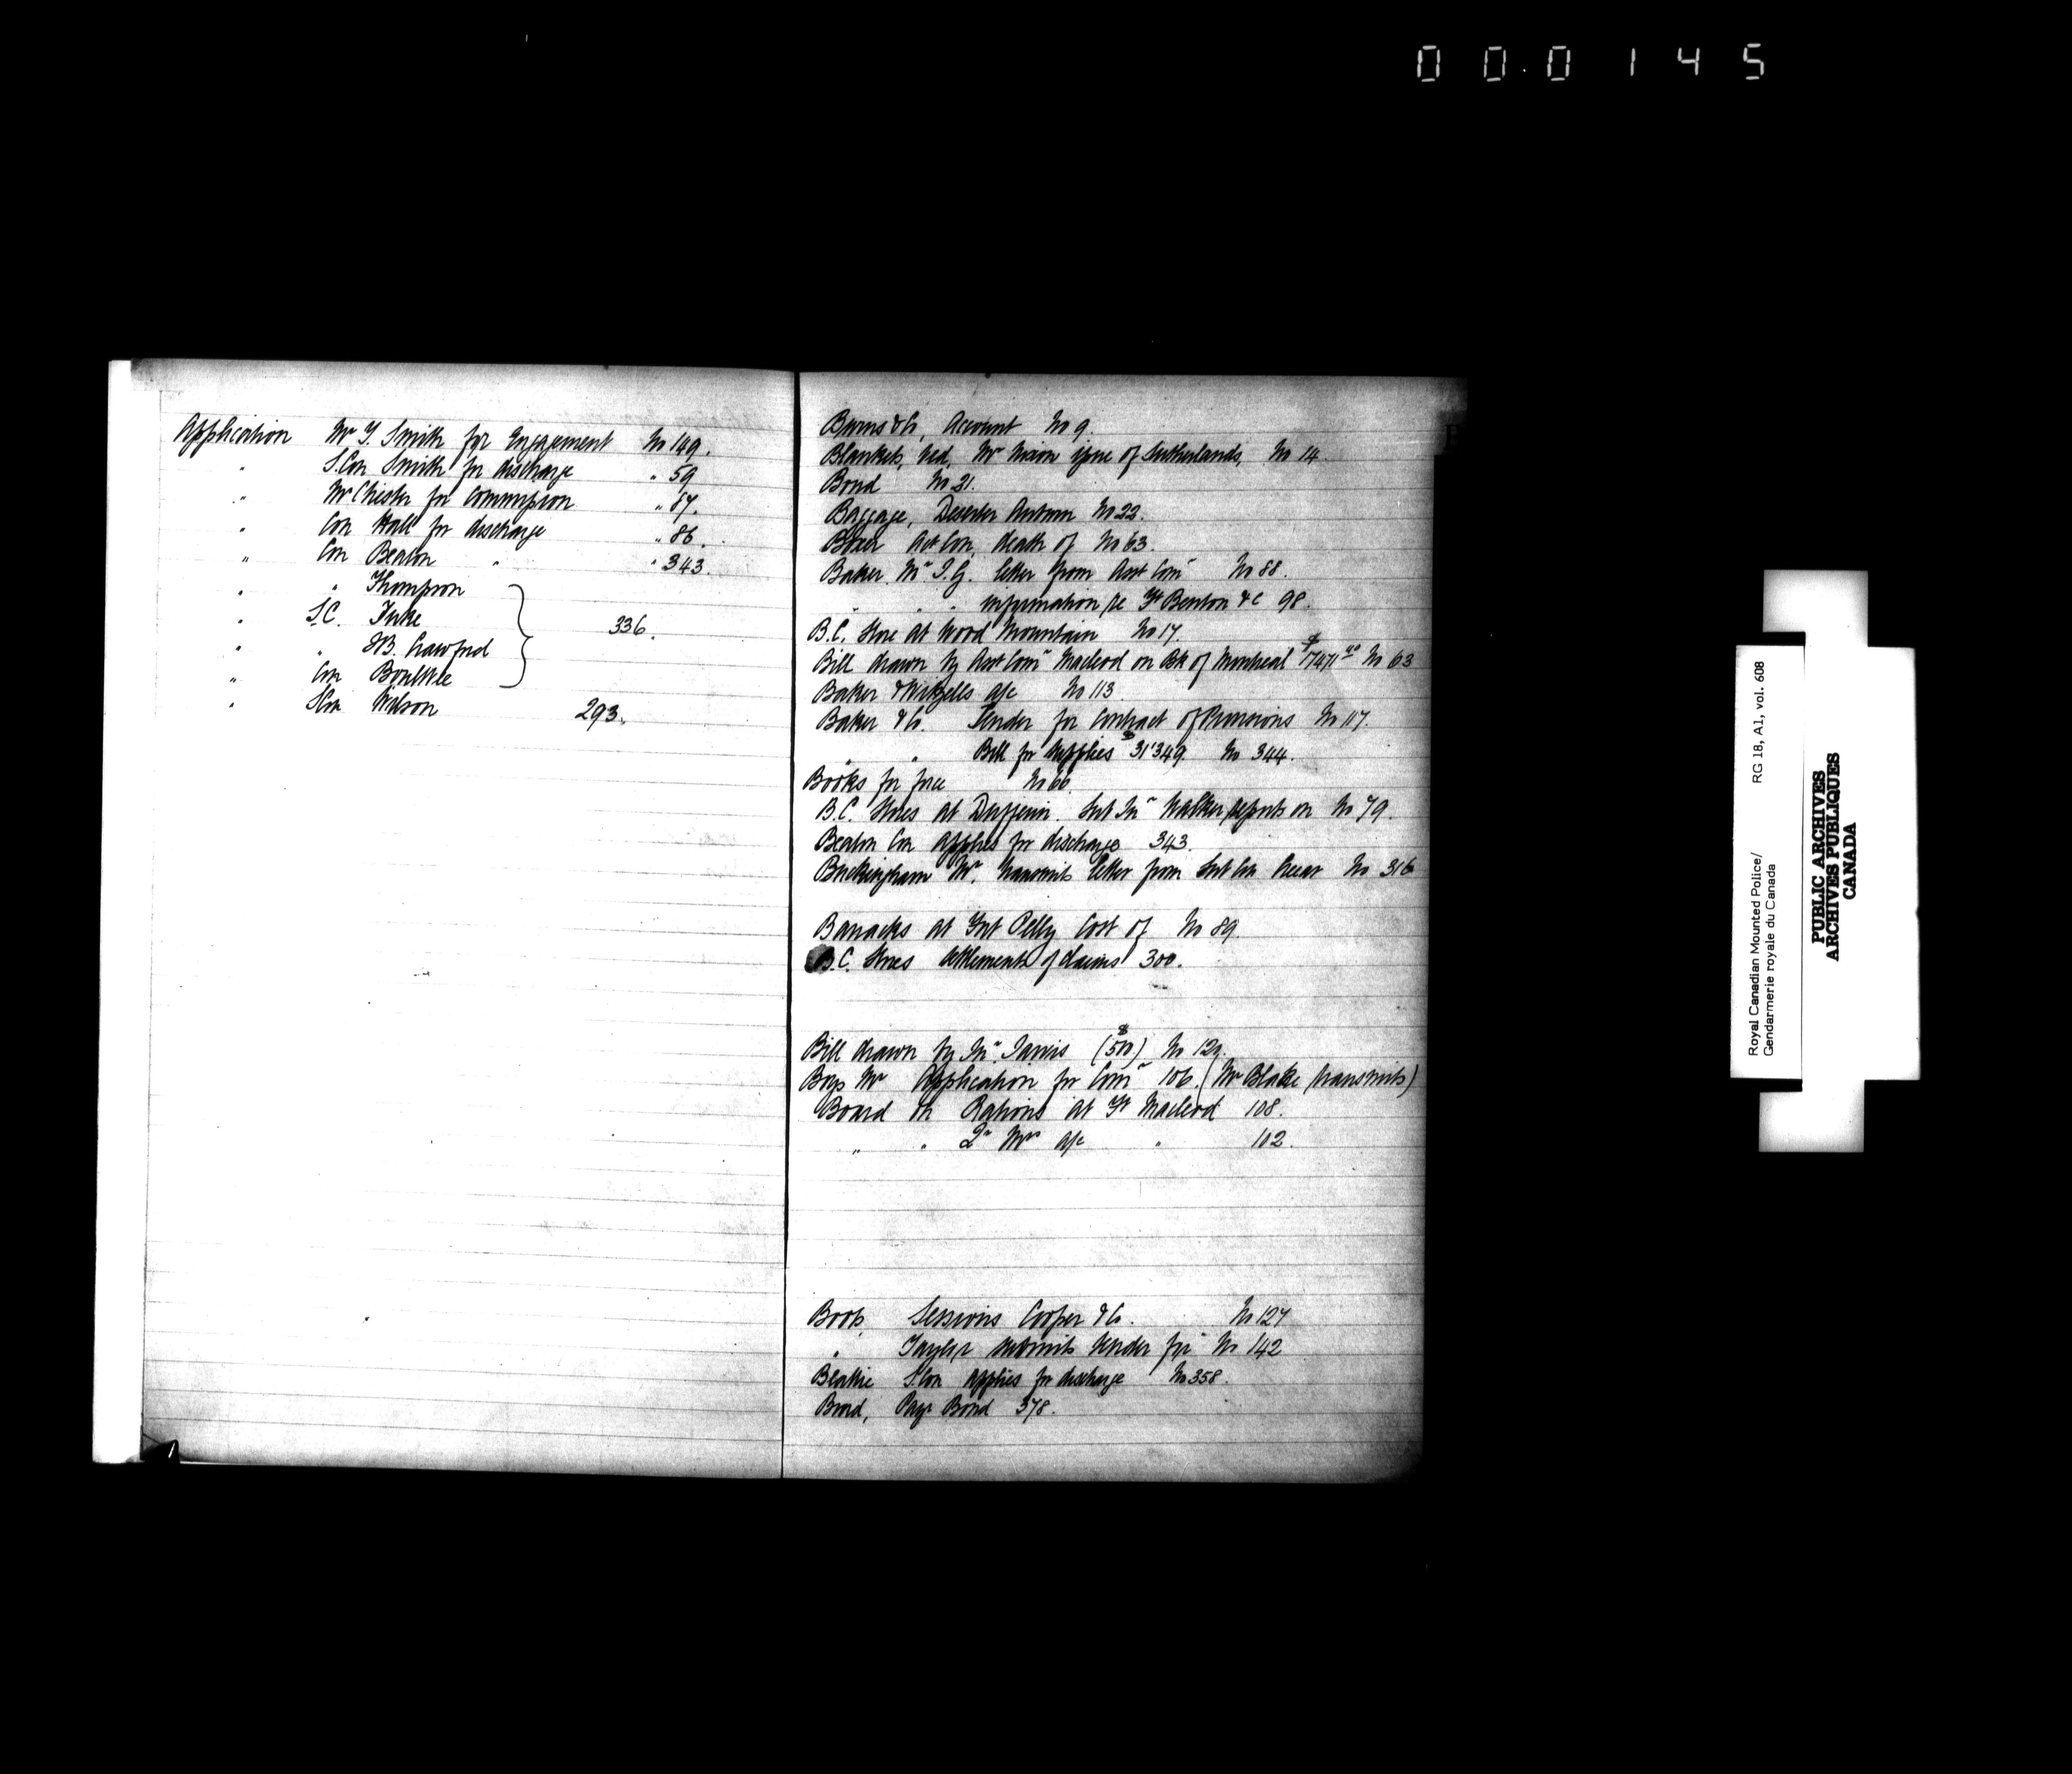 000145
Application Mr Y. Smith for Engagement No 149.
" S. Con Smith for discharge " 59
" Mr Chester for Commission " 67.
" Con Hall for discharge " 86.
" Con Beaton " " 343.
" " Thompson
" S.C. Tuke 336.
" " H.B. Crawford
" Con Boulttee
" S Con Wilson 293.
B
Burns & Co, Account No 9.
Blankets, bed, Mr Nixon of Sutherlands, No 14
Bond No 21.
Baggage, Deserter No 22.
Boxer Act Con, death of No 63.
Baker Mr I.G. letter from Asst Comr No 88.
" " " information re Ft Benton &c 98.
B.C. Store at Wood Mountain No 17.
Bill drawn by Asst Comr Macleod on Bk of Montreal No 63
Baker & a/c No 113
Baker & Co. Tender for Contract of Provisions No 117.
" " Bill for supplies $31'349. No 344.
Books for force No 66
B.C. Stores at Dufferin. Sub Inr Walker reports on No 79.
Beaton Con applies for discharge 343.
Buckingham Mr. transmits letter from Sub Con No 316
Barracks at Fort Pelly Cost of No 89.
B.C. Stores settlement of claims 300.
Bill drawn by Inr. Jarvis ($500) No 129.
Boys Mr Application for Comn 106. (Mr Blake transmits)
Board on Rations at Ft Macleod 108.
" " Qr Mrs a/c " 102.
Boots, Sessions Cooper & Co. No 127
" Tayler submits tender for No 142
Beattie S. Con applies for discharge No 358.
Bond, Payr Bond 378.
Royal Canadian Mounted Police/
Gendarmerie royale du Canada
RG 18, A1, vol. 608
PUBLIC ARCHIVES
ARCHIVES PUBLIQUES
CANADA